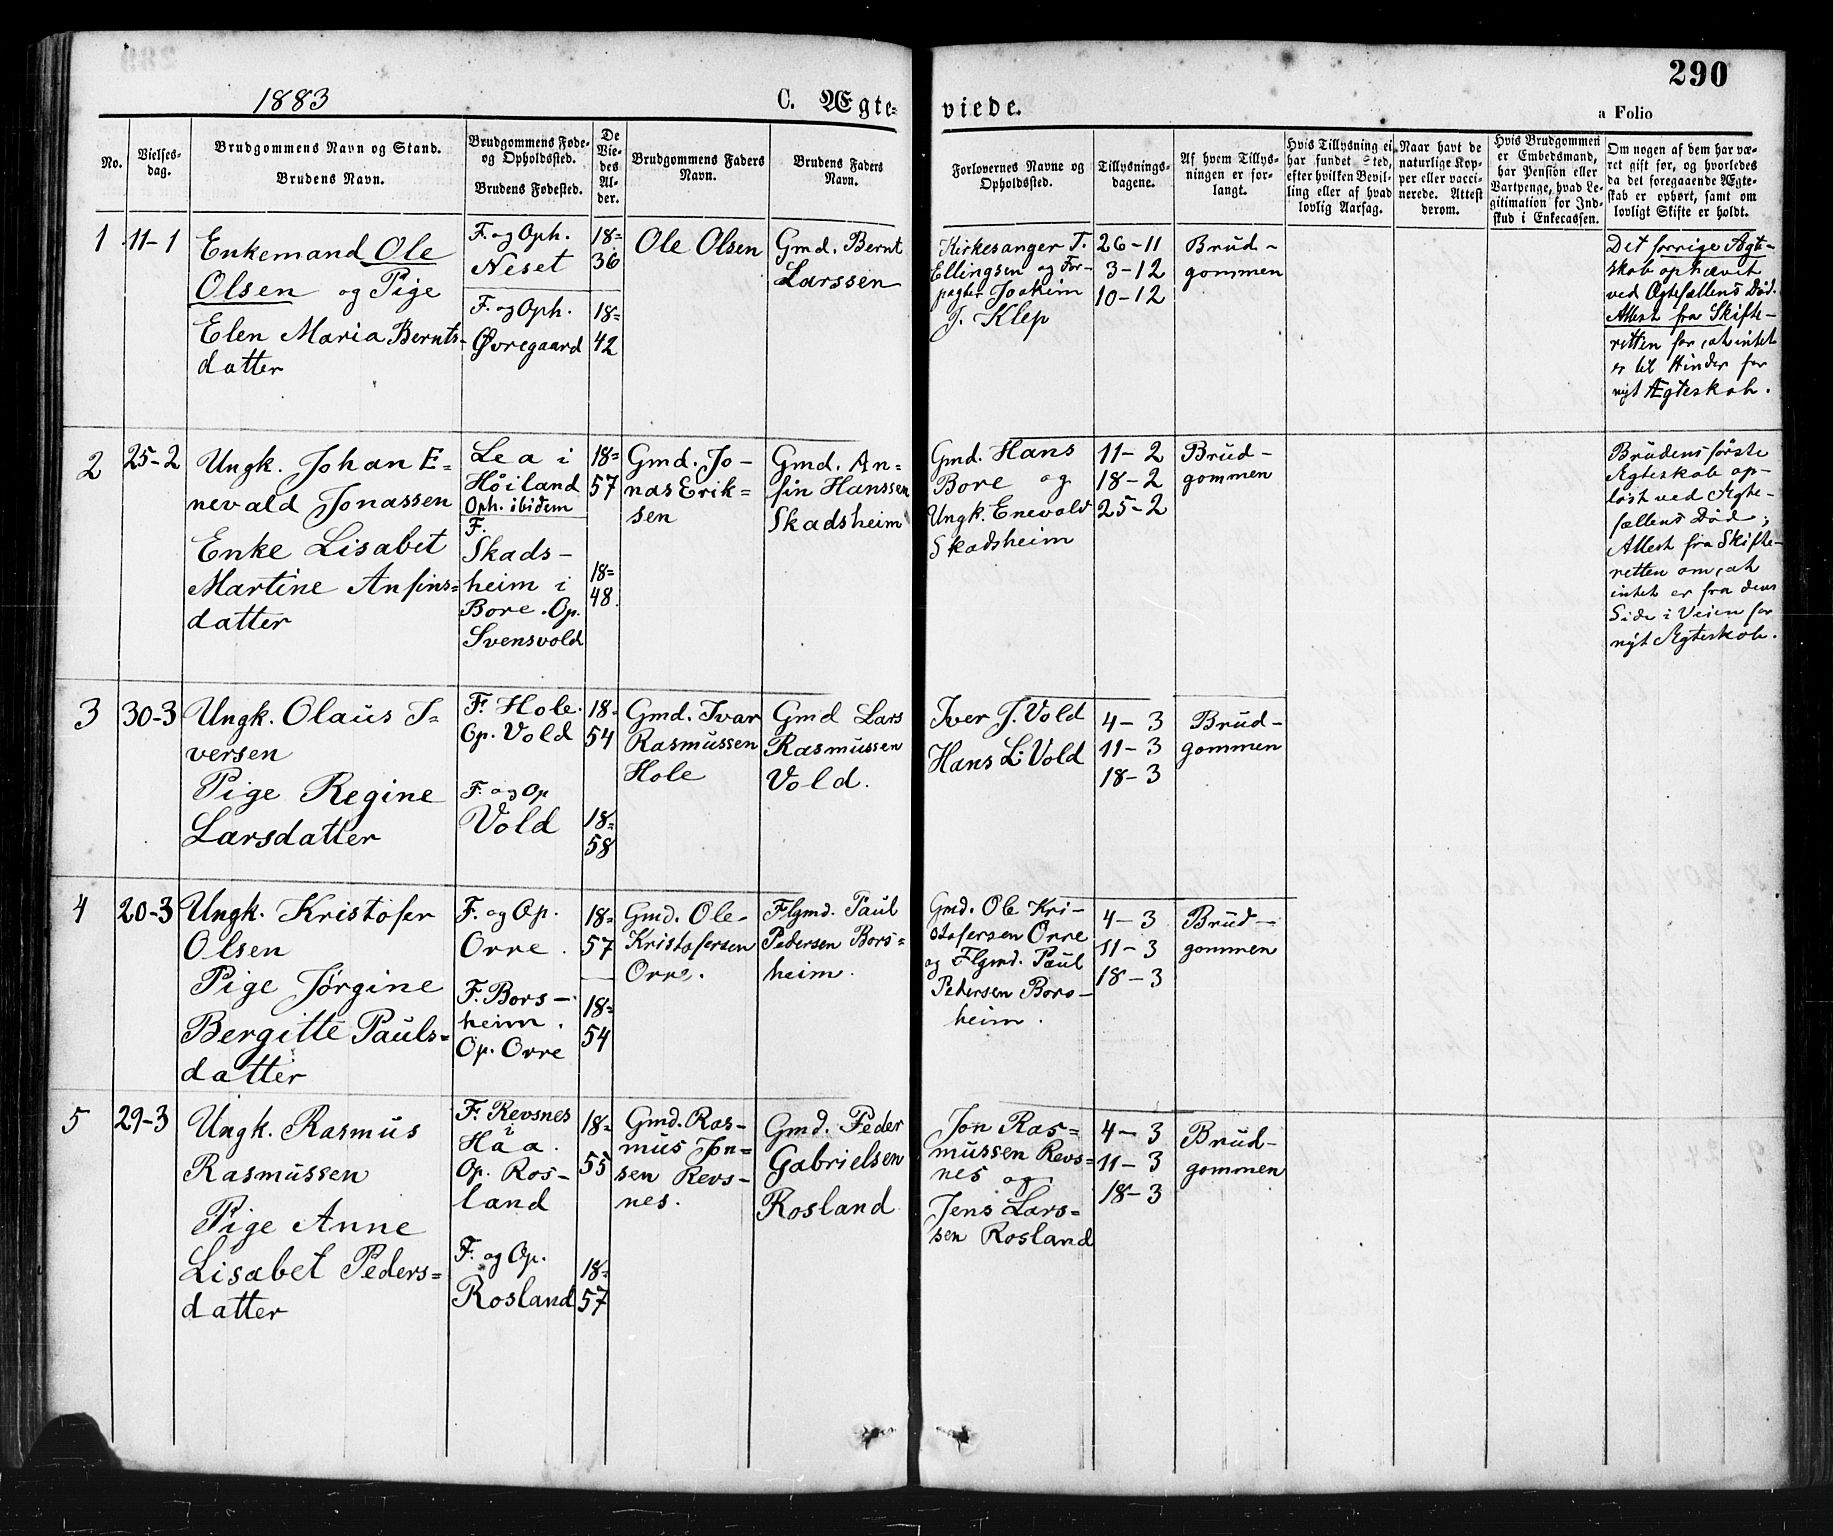 290
1883
C. Ægte-
viede.
a Folio
No.
Vielses-
dag.
Brudgommens Navn og Stand.
Brudens Navn.
Brudgommens Føde-
og Opholdssted.
Brudens Fødested.
De
Vie-
des
Al-
der.
Brudgommens Faders
Navn.
Brudens Faders
Navn.
Forlovernes Navne og
Opholdssted.
Tillysnings-
dagene.
Af hvem Tillys-
ningen er for-
langt.
Hvis Tillysning ei
har fundet Sted,
efter hvilken Bevil-
ling eller af hvad
lovlig Aarsag.
Naar havt de
naturlige Kop-
per eller vacci-
nerede. Attest
derom.
Hvis Brudgommen
er Embedsmand,
har Pension eller
Vartpenge, hvad Le-
gitimation for Ind-
skud i Enkecassen.
Om nogen af dem har væ-
ret gift før, og hvorledes
da det foregaaende Ægte-
skab er ophørt, samt om
lovligt Skifte er holdt.
1
11-1
Enkemand Ole
Olsen og Pige
Elen Maria Bernts-
datter
F. og Oph.
Neset
F. og Oph.
Øvregaard
18=
36
18=
42
Ole Olsen
Gmd. Bernt
Larssen
Kirkesanger T.
Ellingsen og For-
pagter Joakim
J. Klep
26-11
3-12
10-12
Brud-
gommen
Det forrige Ægt-
skab ophævet
ved Ægtefællens Død.
Attest fra Skifte-
retten for, at intet
er til Hinder for
nyt Ægteskab.
2
25-2
Ungk. Johan E-
nevald Jonassen
Enke Lisabet
Martine Anfins=
datter
Lea i
Høiland
Oph. ibidem
F.
Skads-
heim i
Bore. Op.
Svensvold
18=
57
18=
48.
Gmd. Jo-
nas Erik=
sen
Gmd. An=
fin Hanssen
Skadsheim
Gmd. Hans
Bore og
Ungk. Enevald
Skadsheim
11-2
18-2
25-2
Brud-
gommen
Brudens første
Ægteskab op-
løst ved Ægte-
fællens Død;
Attest fra Skifte-
retten om, at
intet er fra dens
Side i Veien for
nyt Ægteskab.
3
30-3
Ungk. Olaus I=
versen
Pige Regine
Larsdatter
F. Hole.
Op. Vold
F. og Op
Vold
18=
54
18=
58
Gmd. Ivar
Rasmussen
Hole
Gmd Lars
Rasmussen
Vold.
Iver J. Vold
Hans L. Vold
4-3
11-3
18-3
Brud-
gommen
4
20-3
Ungk. Kristofer
Olsen
Pige Jørgine
Bergitte Pauls-
datter
F. og Op.
Orre.
F. Bors-
heim.
Op. Orre
18=
57
18=
54
Gmd. Ole-
Kristofersen
Orre.
Flgmd. Paul
Pedersen Bors=
heim.
Gmd. Ole Kri-
stofersen Orre
og Flgmd. Paul
Pedersen Bors-
heim.
4-3
11-3
18-3
Brud-
gommen
5
29-3
Ungk. Rasmus
Rasmussen
Pige Anne
Lisabet Peders=
datter
F. Revsnes
i
Haa.
Op. Ros-
land
F. og Op.
Rosland
18=
55
18=
57
Gmd. Ras-
mus Jon=
sen Revs-
nes.
Gmd. Peder
Gabrielsen
Rosland
Jon Ras=
mussen Revs=
nes og
Jens Lars=
sen Rosland
4-3
11-3
18-3
Brud-
gommen